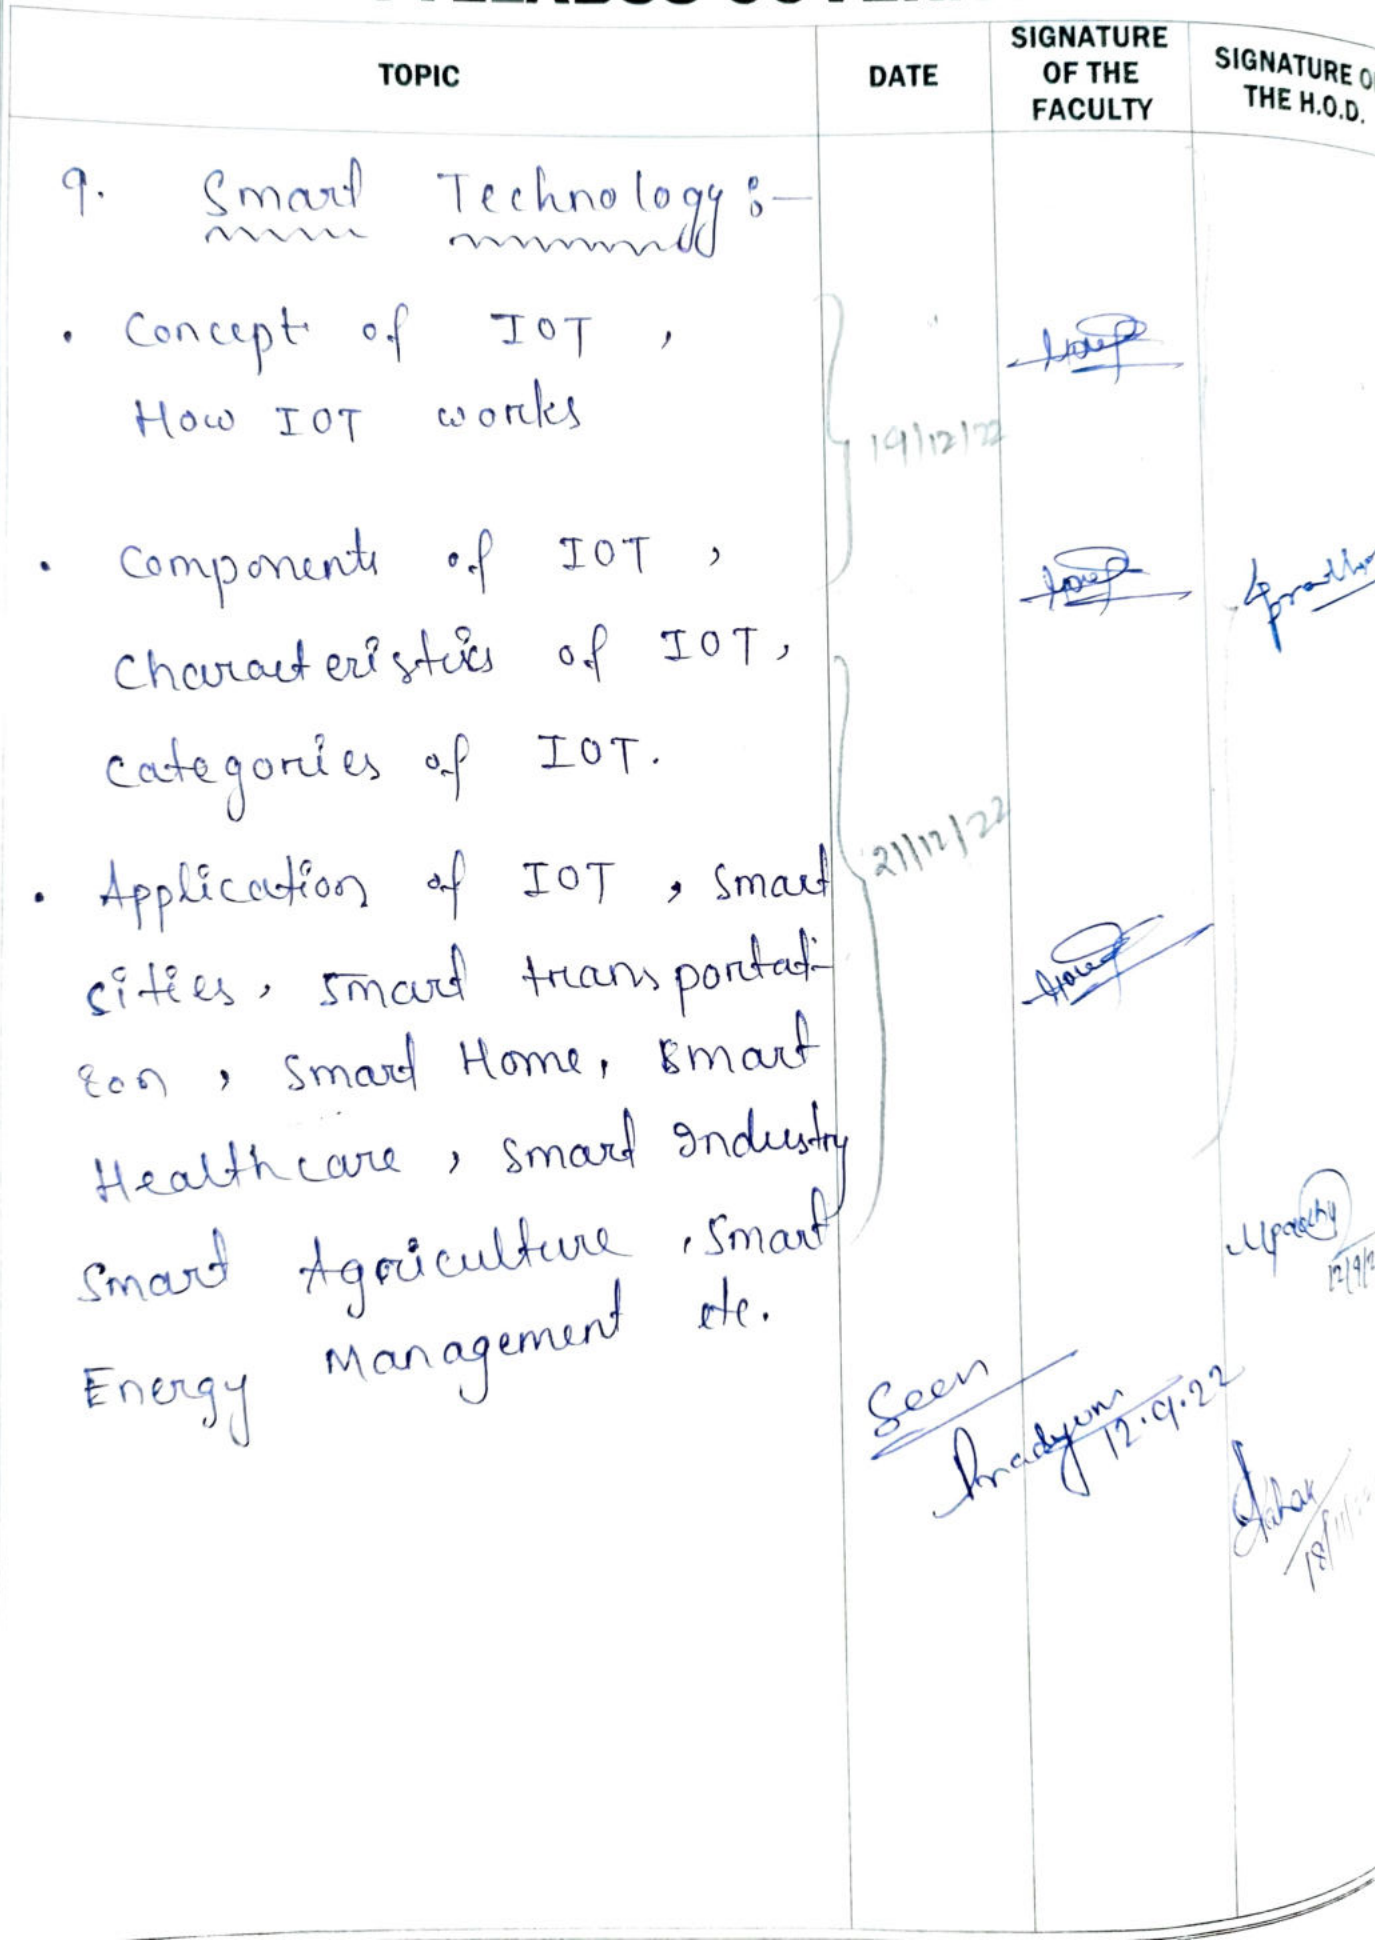 TOPIC
DATE
SIGNATURE
OF THE
FACULTY
SIGNATURE
THE H.O.D.
9. Smart Technology :-
• Concept of IOT ,
How IOT works
19/12/22
• Components of IOT ,
Characteristics of IOT,
Categories of IOT.
21/12/22
• Application of IOT , Smart
cities, smart transportati-
ion , Smart Home, smart
Healthcare , smart Industry
Smart Agriculture , Smart
Energy Management etc.
Seen
12.9.22